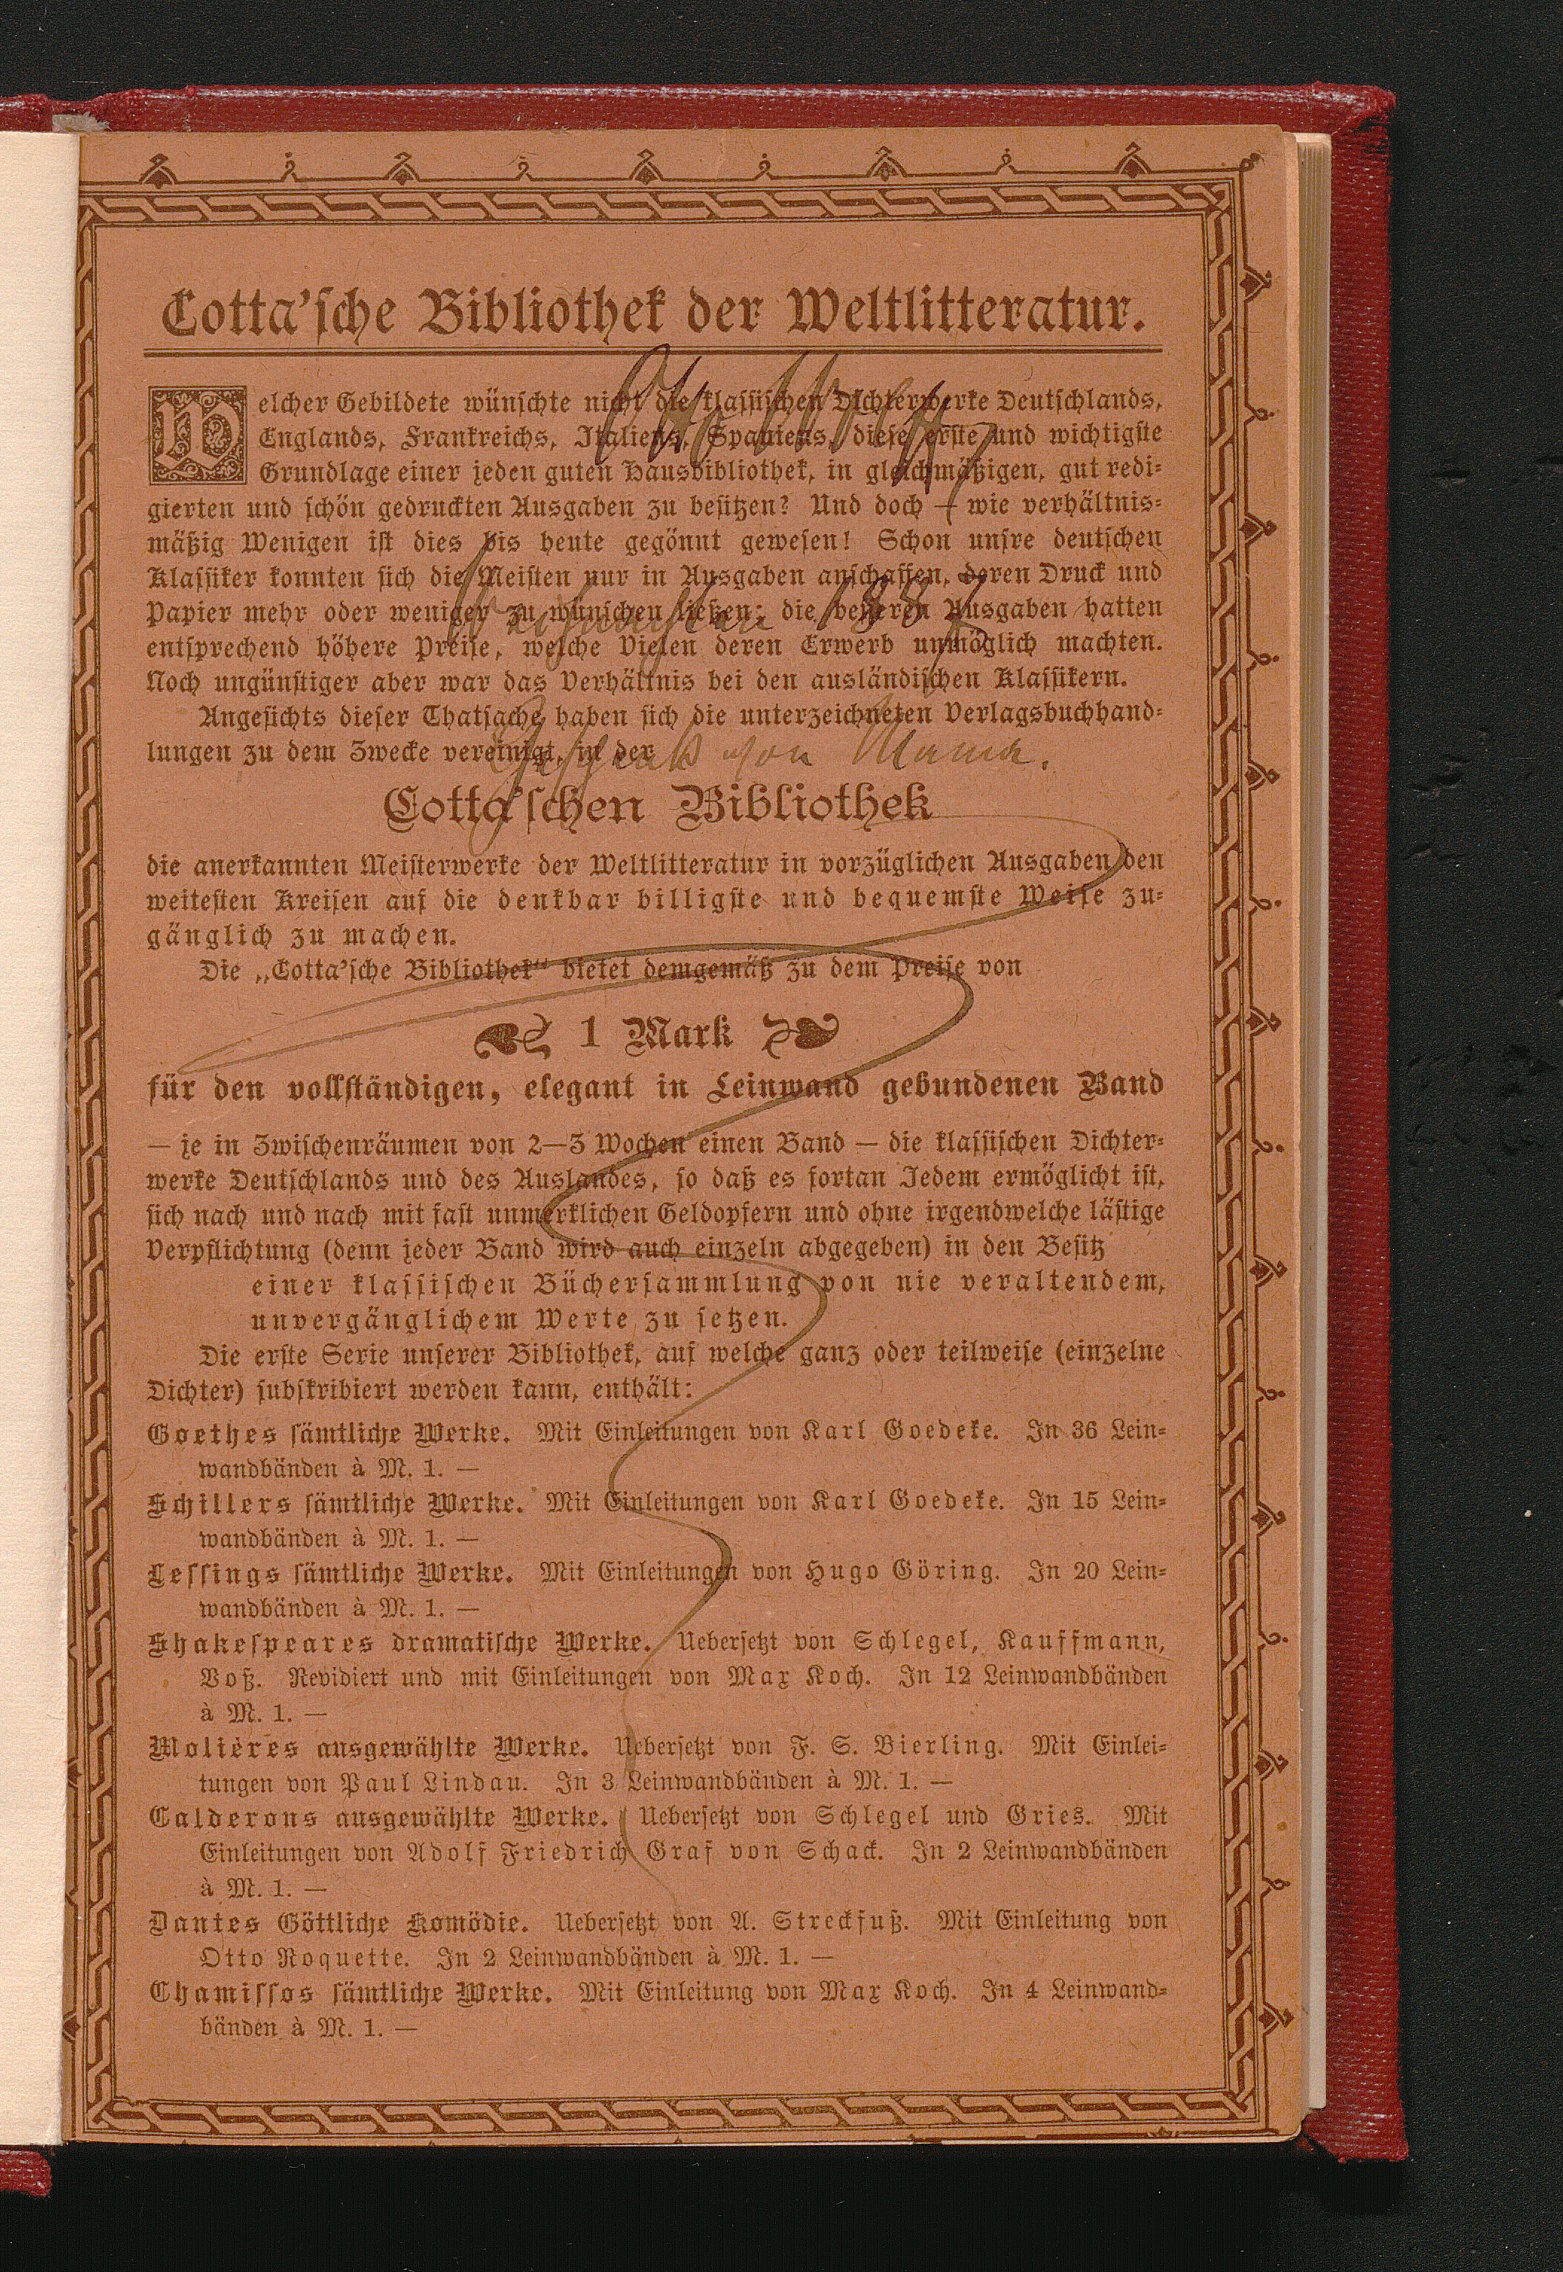 Cotta'sche Bibliothek der Weltlitteratur.
Welcher Gebildete wünschte nicht die klassischen Dichterwerke Deutschlands,
Englands, Frankreichs, Italiens, Spaniens, diese erste und wichtigste
Grundlage einer jeden guten Hausbibliothek, in gleichmäßigen, gut redi-
gierten und schön gedruckten Ausgaben zu besitzen? Und doch — wie verhältnis-
mäßig Wenigen ist dies bis heute gegönnt gewesen! Schon unsre deutschen
Klassiker konnten sich die Meisten nur in Ausgaben anschaffen, deren Druck und
Papier mehr oder weniger zu wünschen ließen; die besseren Ausgaben hatten
entsprechend höhere Preise, welche Vielen deren Erwerb unmöglich machten.
Noch ungünstiger aber war das Verhältnis bei den ausländischen Klassikern.
Angesichts dieser Thatsache haben sich die unterzeichneten Verlagsbuchhand-
lungen zu dem Zwecke vereinigt, in der
Otto
Weihnachten 188
Geschenk von Mama.
Cotta'schen Bibliothek
die anerkannten Meisterwerke der Weltlitteratur in vorzüglichen Ausgaben den
weitesten Kreisen auf die denkbar billigste und bequemste Weise zu-
gänglich zu machen.
Die „Cotta'sche Bibliothek“ bietet demgemäß zu dem Preise von
1 Mark
für den vollständigen, elegant in Leinwand gebundenen Band
— je in Zwischenräumen von 2—3 Wochen einen Band — die klassischen Dichter-
werke Deutschlands und des Auslandes, so daß es fortan Jedem ermöglicht ist,
sich nach und nach mit fast unmerklichen Geldopfern und ohne irgendwelche lästige
Verpflichtung (denn jeder Band wird auch einzeln abgegeben) in den Besitz
einer klassischen Büchersammlung von nie veraltendem,
unvergänglichem Werte zu setzen.
Die erste Serie unserer Bibliothek, auf welche ganz oder teilweise (einzelne
Dichter) subskribiert werden kann, enthält:
Goethes sämtliche Werke. Mit Einleitungen von Karl Goedeke. In 36 Lein-
wandbänden à M. 1. —
Schillers sämtliche Werke. Mit Einleitungen von Karl Goedeke. In 15 Lein-
wandbänden à M. 1. —
Lessings sämtliche Werke. Mit Einleitungen von Hugo Göring. In 20 Lein-
wandbänden à M. 1. —
Shakespeares dramatische Werke. Uebersetzt von Schlegel, Kauffmann,
Voß. Revidiert und mit Einleitungen von Max Koch. In 12 Leinwandbänden
à M. 1. —
Molières ausgewählte Werke. Uebersetzt von F. S. Bierling. Mit Einlei-
tungen von Paul Lindau. In 3 Leinwandbänden à M. 1. —
Calderons ausgewählte Werke. Uebersetzt von Schlegel und Gries. Mit
Einleitungen von Adolf Friedrich Graf von Schack. In 2 Leinwandbänden
à M. 1. —
Dantes Göttliche Komödie. Uebersetzt von A. Streckfuß. Mit Einleitung von
Otto Roquette. In 2 Leinwandbänden à M. 1. —
Chamissos sämtliche Werke. Mit Einleitung von Max Koch. In 4 Leinwand-
bänden à M. 1. —